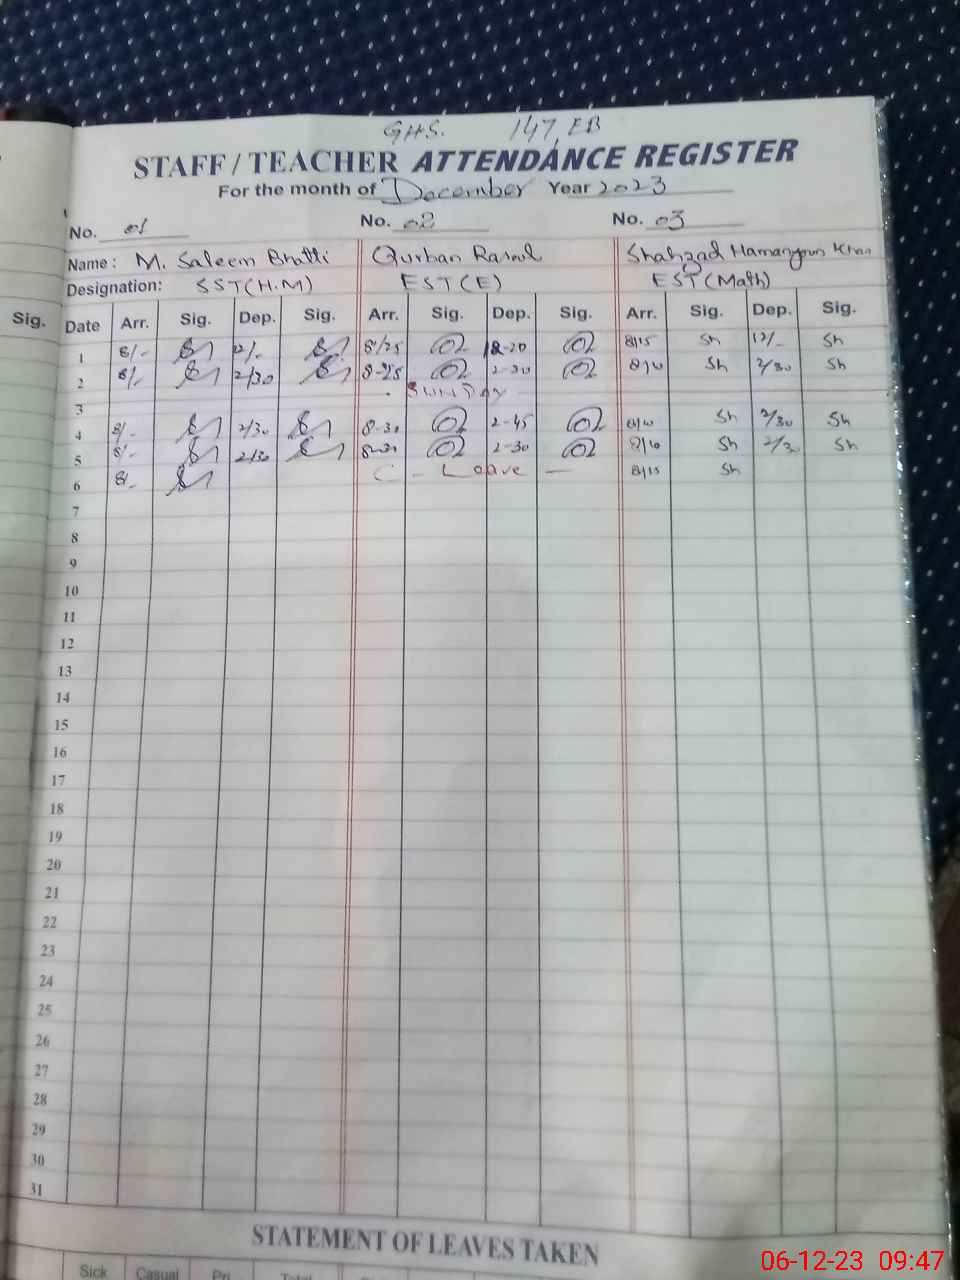 GHS. 147, EB
STAFF / TEACHER ATTENDANCE REGISTER
For the month of December Year 2023
No. 01 No. 02 No. 03
Name: M. Saleem Bhatti Qurban Rasul Shahzad Hamayoun Khan
Designation: SST(H.M) EST(E) EST(Math)
Sig. Date Arr. Sig. Dep. Sig. Arr. Sig. Dep. Sig. Arr. Sig. Dep. Sig.
1 8/- 12/- 8/25 12-20 8/15 Sh 12/- Sh
2 8/- 2/30 8-25 2-30 8/10 Sh 2/30 Sh
3 SUNDAY
4 8/- 2/30 8-30 2-45 8/10 Sh 2/30 Sh
5 8/- 2/30 2-30 8/10 Sh 2/30 Sh
6 8/- C - Leave - 8/15 Sh
7
8
9
10
11
12
13
14
15
16
17
18
19
20
21
22
23
24
25
26
27
28
29
30
31
STATEMENT OF LEAVES TAKEN
Sick Casual Pri Total
06-12-23 09:47